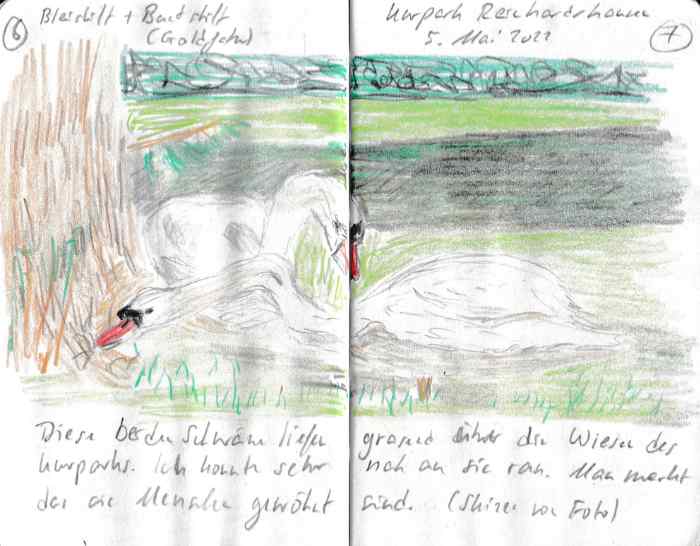 6 Bleistift + Buntstift
(Goldfaber)
Kurpark Reinhardshausen
5. Mai 2022 7
Diese beiden Schwäne liefen grasend über die Wiesen des
Kurparks. Ich konnte sehr nah an sie ran. Man merkt
das die Menschen gewöhnt sind. (Skizze von Foto)